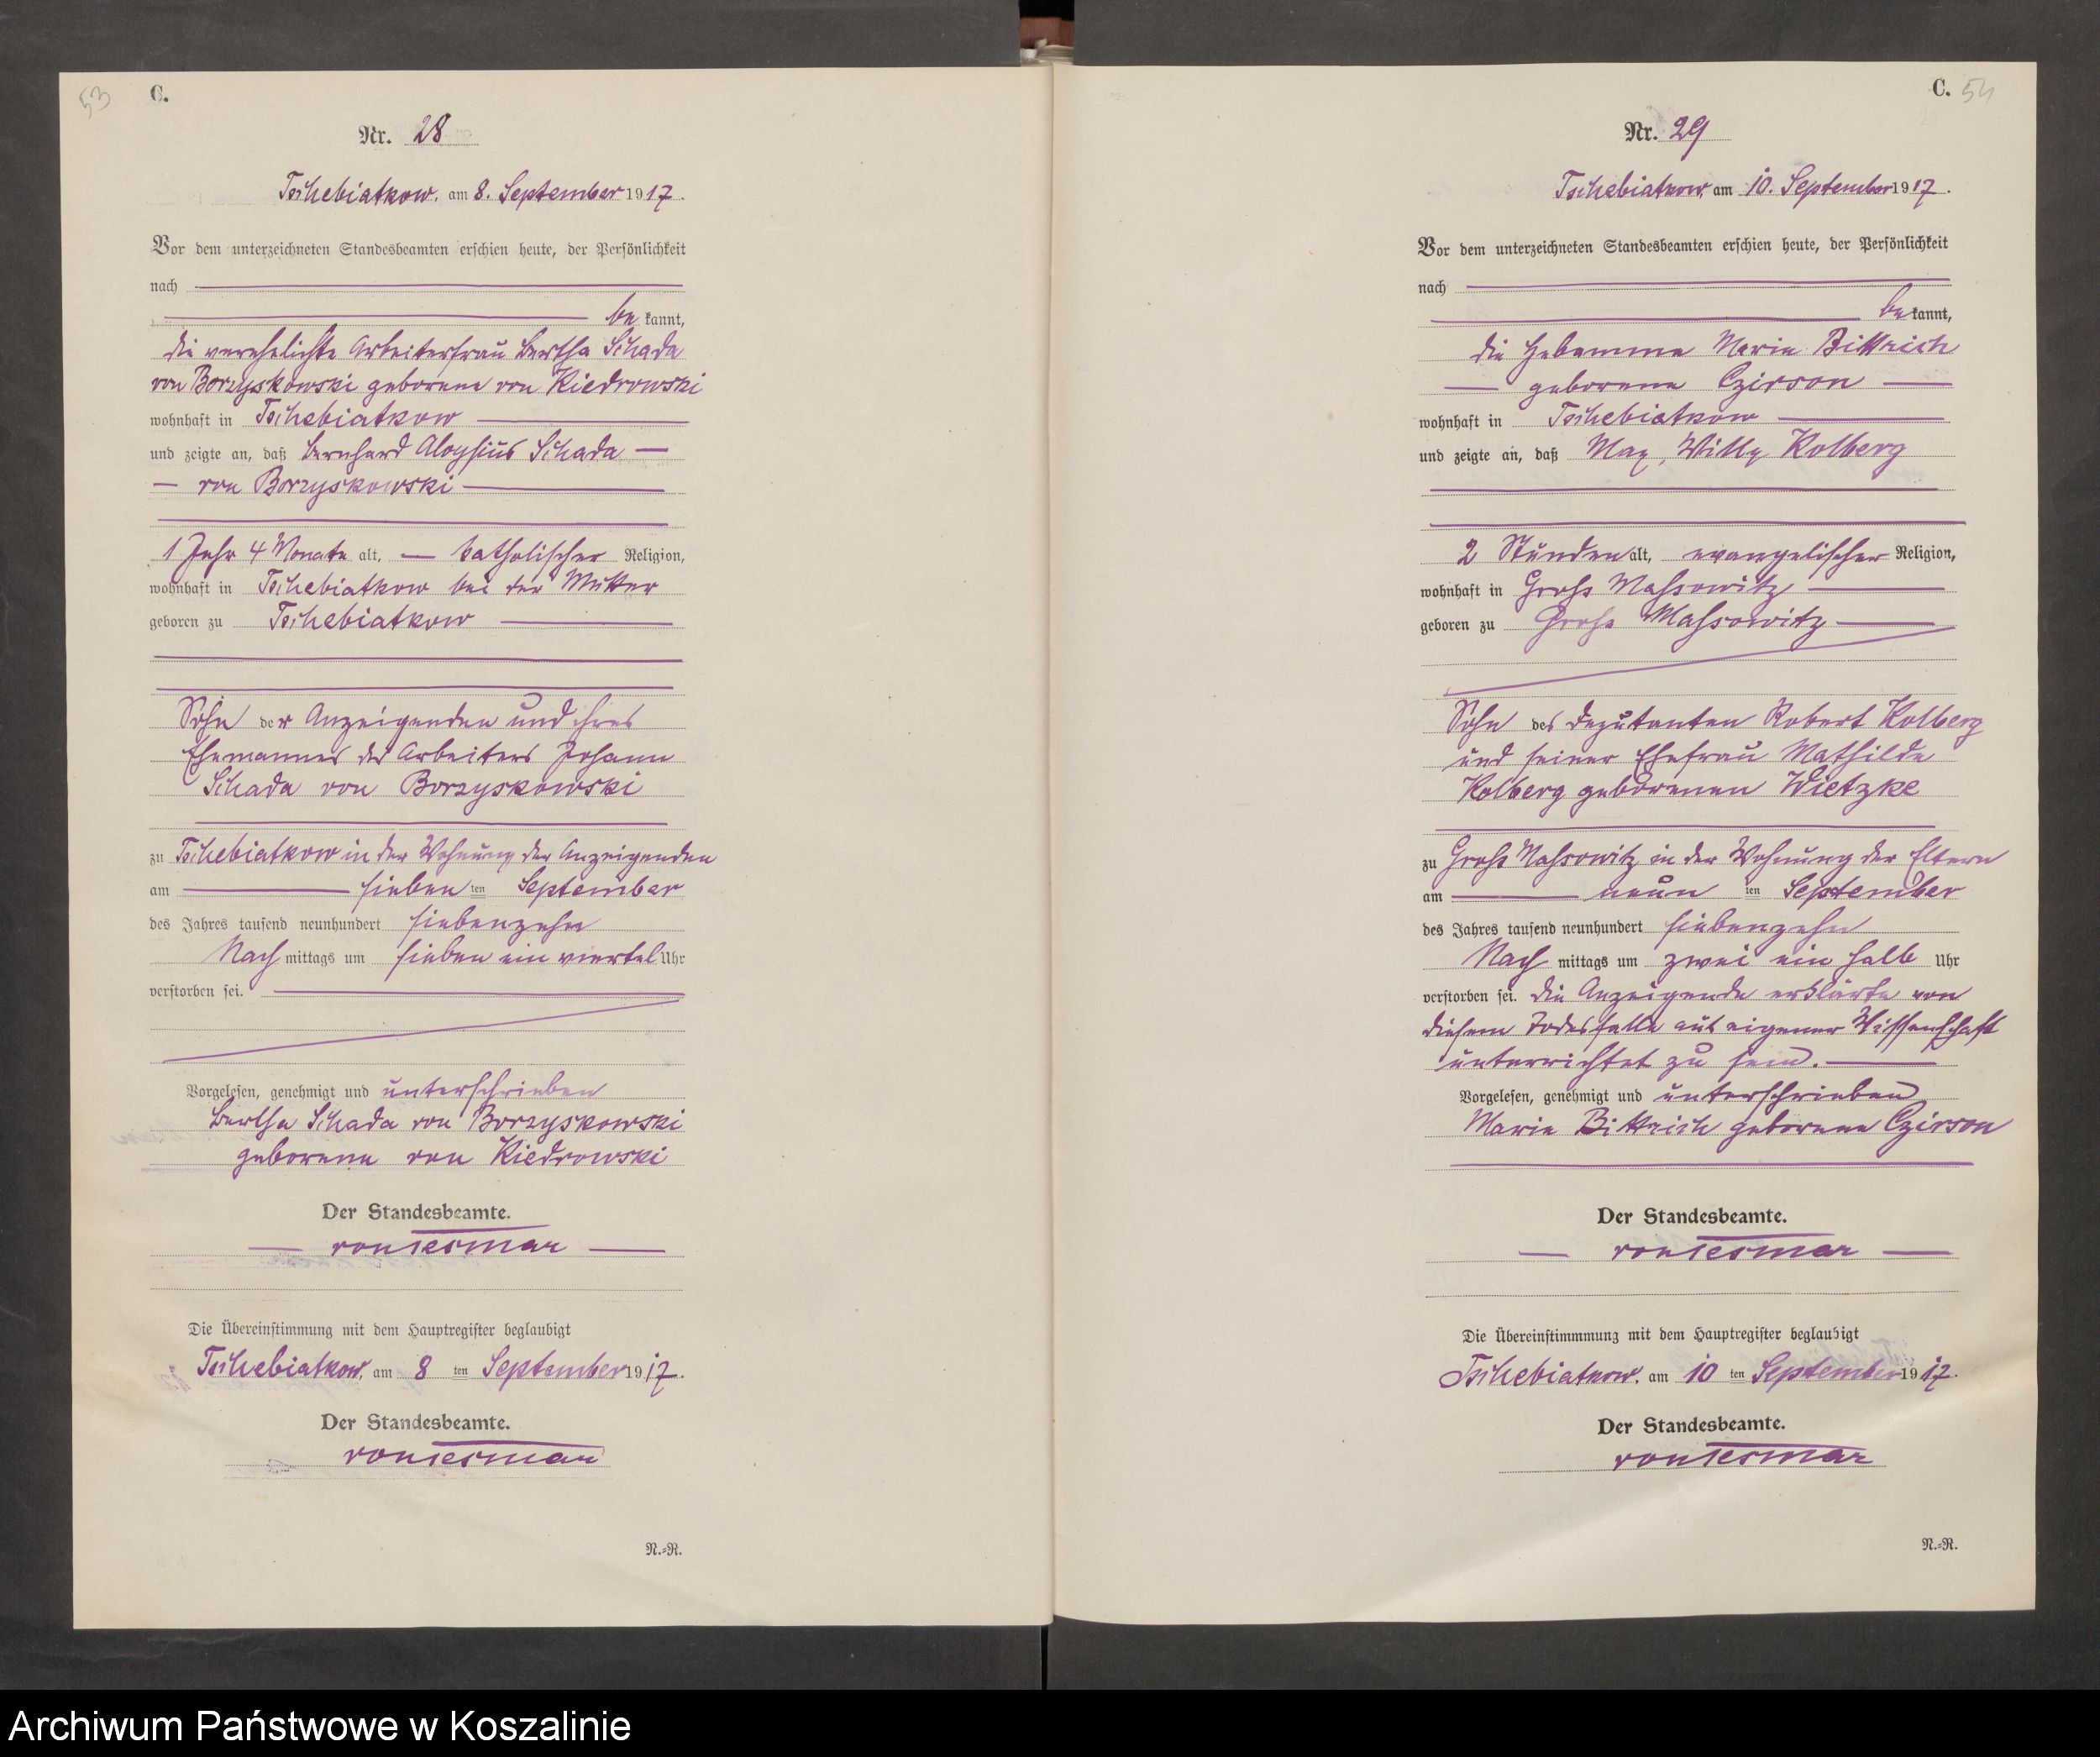 53
C.
Nr. 28
Tschebiatkow, am 8. September 1917.
Vor dem unterzeichneten Standesbeamten erschien heute, der Persönlichkeit
nach
be kannt,
die verehelichte Arbeiterfrau Bertha Schada
von Borzyskowski geborene von Kiedrowski
wohnhaft in Tschebiatkow
und zeigte an, daß Bernhard Aloysius Schada
von Borzyskowski
1 Jahr 4 Monate alt, katholischer Religion,
wohnhaft in Tschebiatkow bei der Mutter
geboren zu Tschebiatkow
Sohn der Anzeigenden und ihres
Ehemannes des Arbeiters Johann
Schada von Borzyskowski
zu Tschebiatkow in der Wohnung der Anzeigenden
am sieben ten September
des Jahres tausend neunhundert siebenzehn
Nach mittags um sieben ein viertel Uhr
verstorben sei.
Vorgelesen, genehmigt und unterschrieben
Bertha Schada von Borzyskowski
geborene von Kiedrowski
Der Standesbeamte.
von Tesmar
Die Übereinstimmung mit dem Hauptregister beglaubigt
Tschebiatkow, am 8 ten September 1917.
Der Standesbeamte.
von Tesmar
N.=R.
C. 54
Nr. 29
Tschebiatkow, am 10. September 1917.
Vor dem unterzeichneten Standesbeamten erschien heute, der Persönlichkeit
nach
be kannt,
die Hebamme Marie Bittrich
geborene Czirson
wohnhaft in Tschebiatkow
und zeigte an, daß Max, Willy Kolberg
2 Stunden alt, evangelischer Religion,
wohnhaft in Gross Massowitz
geboren zu Gross Massowitz
Sohn des Deputanten Robert Kolberg
und seiner Ehefrau Mathilde
Kolberg geborenen Wietzke
zu Gross Massowitz in der Wohnung der Eltern
am neun ten September
des Jahres tausend neunhundert siebenzehn
Nach mittags um zwei ein halb Uhr
verstorben sei. Die Anzeigende erklärte von
diesem Todesfalle aus eigener Wissenschaft
unterrichtet zu sein.
Vorgelesen, genehmigt und unterschrieben
Marie Bittrich geborene Czirson
Der Standesbeamte.
von Tesmar
Die Übereinstimmmung mit dem Hauptregister beglaubigt
Tschebiatkow, am 10 ten September 1917.
Der Standesbeamte.
von Tesmar
N.=R.
Archiwum Państwowe w Koszalinie